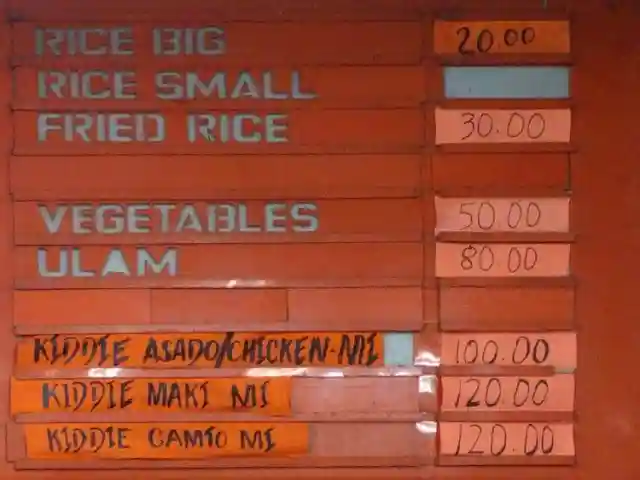 RICE BIG 20.00
RICE SMALL
FRIED RICE 30.00
VEGETABLES 50.00
ULAM 80.00
KIDDIE ASADO/CHICKEN-MI 100.00
KIDDIE MAKI MI 120.00
KIDDIE CAMTO MI 120.00